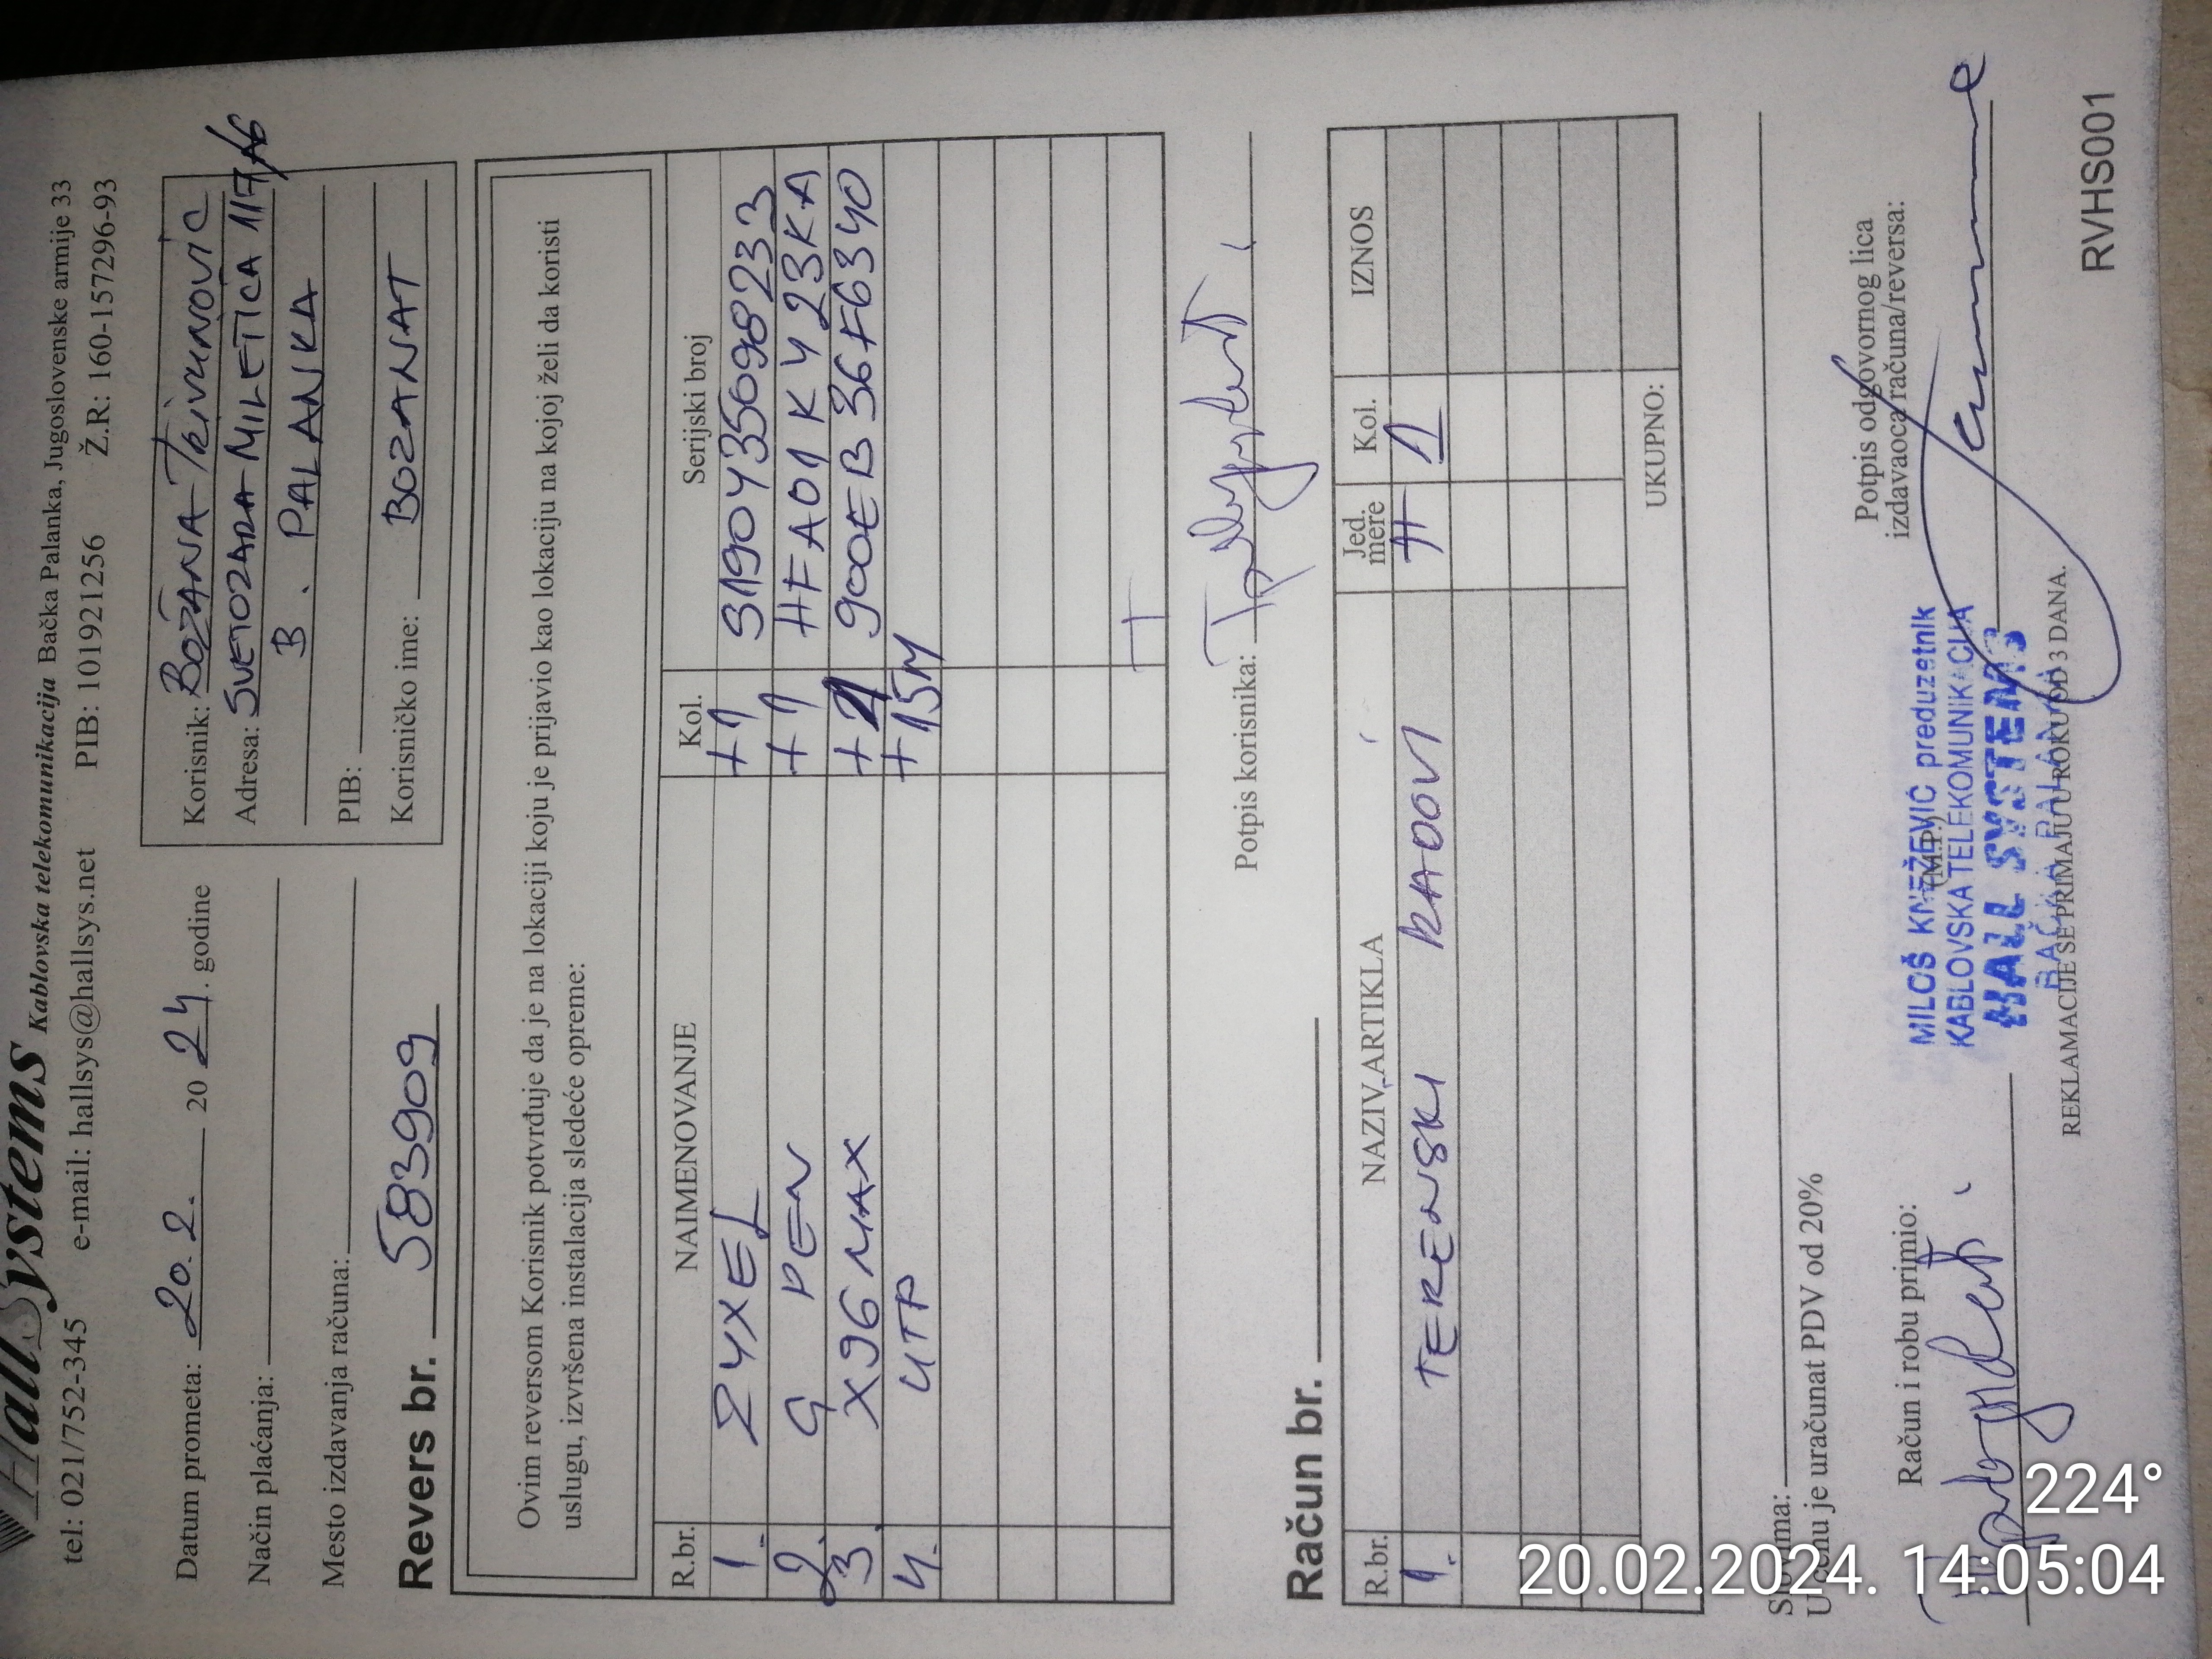 HallSystems Kablovska telekomunikacija Bačka Palanka, Jugoslovenske armije 33
tel: 021/752-345 e-mail: hallsys@hallsys.net PIB: 101921256 Ž.R: 160-157296-93
Datum prometa: 20.2. 2024. godine
Način plaćanja:
Mesto izdavanja računa:
Korisnik: BOŽANA TRIVUNOVIC
Adresa: SVETOZARA MILETICA 117/16
B. PALANKA
PIB:
Korisničko ime: BOZANAT
Revers br. 583909
Ovim reversom Korisnik potvrđuje da je na lokaciji koju je prijavio kao lokaciju na kojoj želi da koristi
uslugu, izvršena instalacija sledeće opreme:
R.br. NAIMENOVANJE Kol. Serijski broj
1. ZYXEL +1 S190Y35098233
2. G PEN +1 HFA01KY23KA
3. X96 MAX +1 900EB36F6340
4. UTP +15M
Potpis korisnika:
Račun br.
R.br. NAZIV ARTIKLA Jed. mere Kol. IZNOS
1. TERENSKI RADOVI H 1
UKUPNO:
Slovima:
U cenu je uračunat PDV od 20%
Račun i robu primio:
(M.P.)
Potpis odgovornog lica
izdavaoca računa/reversa:
MILOŠ KNEŽEVIĆ preduzetnik
KABLOVSKA TELEKOMUNIKACIJA
HALL SYSTEMS
BAČKA PALANKA
REKLAMACIJE SE PRIMAJU U ROKU OD 3 DANA.
RVHS001
224°
20.02.2024. 14:05:04